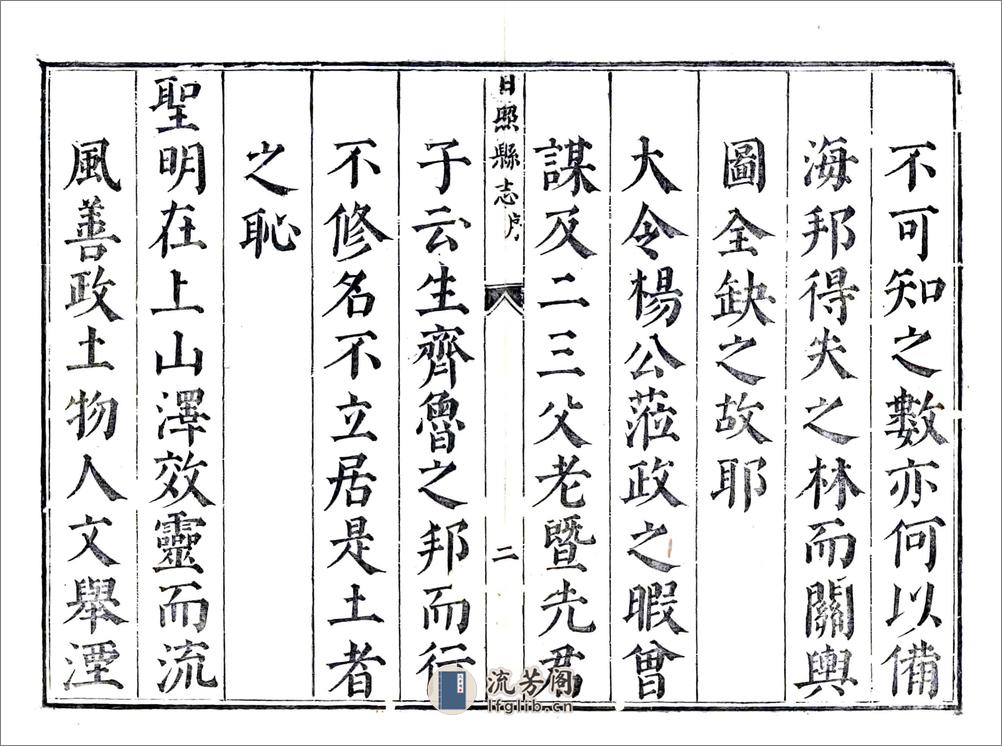 不可知之數亦何以備
海邦得失之林而關輿
圖全缺之故耶
大令楊公蒞政之暇曾
謀及二三父老暨先君
日照縣志序
二
子云生齊魯之邦而行
不修名不立居是土者
之恥
聖明在上山澤效靈而流
風善政土物人文舉湮
流芳阁
lfglib.cn